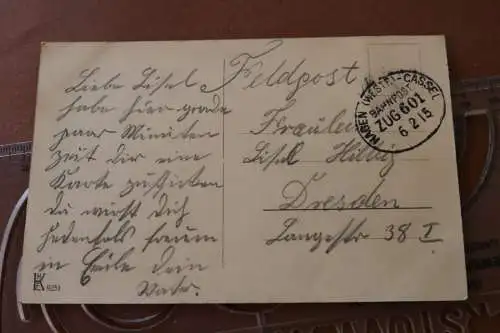 Liebe Lisel
habe hier grade
paar Minuten
zeit dir eine
Karte zuschicken
du wirst dich
jedenfals freuen
in Eeile dein
Vater.
Feldpost
HAGEN (WESTF.)-CASSEL
BAHNPOST
ZUG 601
6 2 15
Fräulein
Lisel
Dresden
Langestr 38 I